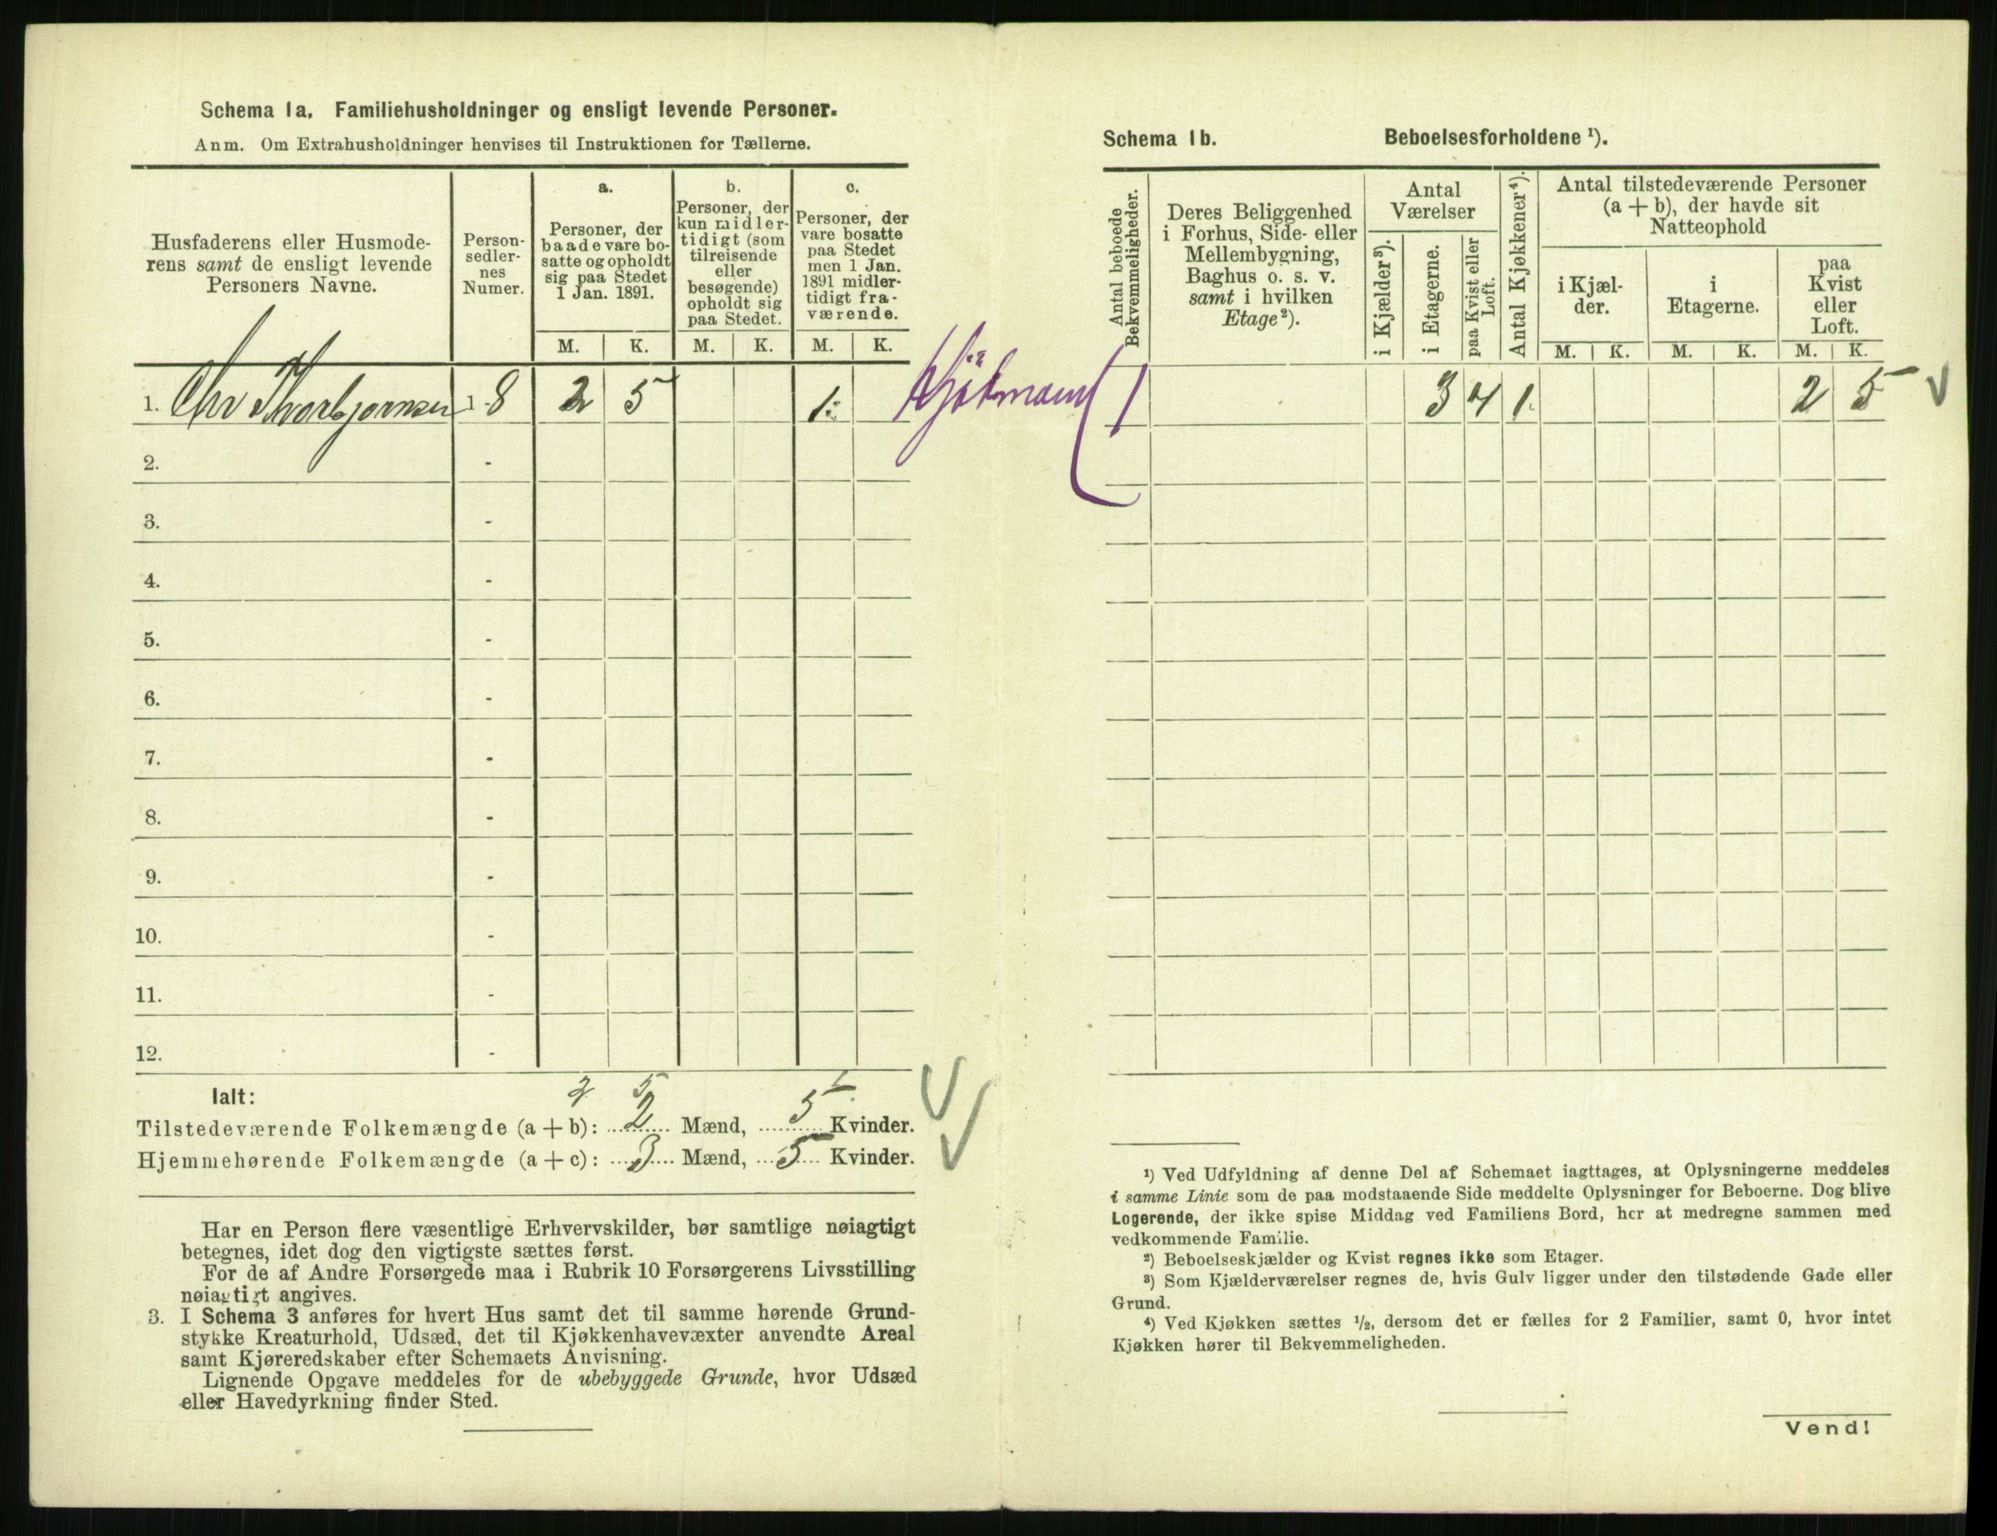 Schema 1a. Familiehusholdninger og ensligt levende Personer.
Anm. Om Extrahusholdninger henvises til Instruktionen for Tællerne.
Husfaderens eller Husmode-
rens samt de ensligt levende
Personers Navne.
Person-
sedler-
nes
Numer.
a.
Personer, der
baade vare bo-
satte og opholdt
sig paa Stedet
1 Jan. 1891.
b.
Personer, der
kun midler-
tidigt (som
tilreisende
eller
besøgende)
opholdt sig
paa Stedet.
c.
Personer, der
vare bosatte
paa Stedet
men 1 Jan.
1891 midler-
tidigt fra-
værende.
M. K. M. K. M. K.
1. Chr Thorbjornsen 1-8 2 5 1.
2. -
3. -
4. -
5. -
6. -
7. -
8. -
9. -
10. -
11. -
12. -
Ialt: 2 5 1
Tilstedeværende Folkemængde (a + b): 2 Mænd, 5 Kvinder.
Hjemmehørende Folkemængde (a + c): 3 Mænd, 5 Kvinder.
Har en Person flere væsentlige Erhvervskilder, bør samtlige nøiagtigt
betegnes, idet dog den vigtigste sættes først.
For de af Andre Forsørgede maa i Rubrik 10 Forsørgerens Livsstilling
nøiagtigt angives.
3. I Schema 3 anføres for hvert Hus samt det til samme hørende Grund-
stykke Kreaturhold, Udsæd, det til Kjøkkenhavevæxter anvendte Areal
samt Kjøreredskaber efter Schemaets Anvisning.
Lignende Opgave meddeles for de ubebyggede Grunde, hvor Udsæd
eller Havedyrkning finder Sted.
Schema 1b. Beboelsesforholdene ¹).
Antal beboede
Bekvemmeligheder.
Deres Beliggenhed
i Forhus, Side- eller
Mellembygning,
Baghus o. s. v.
samt i hvilken
Etage²).
Antal
Værelser
i Kjælder³).
i Etagerne.
paa Kvist eller
Loft.
Antal Kjøkkener⁴).
Antal tilstedeværende Personer
(a + b), der havde sit
Natteophold
i Kjæl-
der.
i
Etagerne.
paa
Kvist
eller
Loft.
M. K. M. K. M. K.
1 3 4 1. 2 5
¹) Ved Udfyldning af denne Del af Schemaet iagttages, at Oplysningerne meddeles
i samme Linie som de paa modstaaende Side meddelte Oplysninger for Beboerne. Dog blive
Logerende, der ikke spise Middag ved Familiens Bord, her at medregne sammen med
vedkommende Familie.
²) Beboelseskjælder og Kvist regnes ikke som Etager.
³) Som Kjælderværelser regnes de, hvis Gulv ligger under den tilstødende Gade eller
Grund.
⁴) Ved Kjøkken sættes ½, dersom det er fælles for 2 Familier, samt 0, hvor intet
Kjøkken hører til Bekvemmeligheden.
Vend!